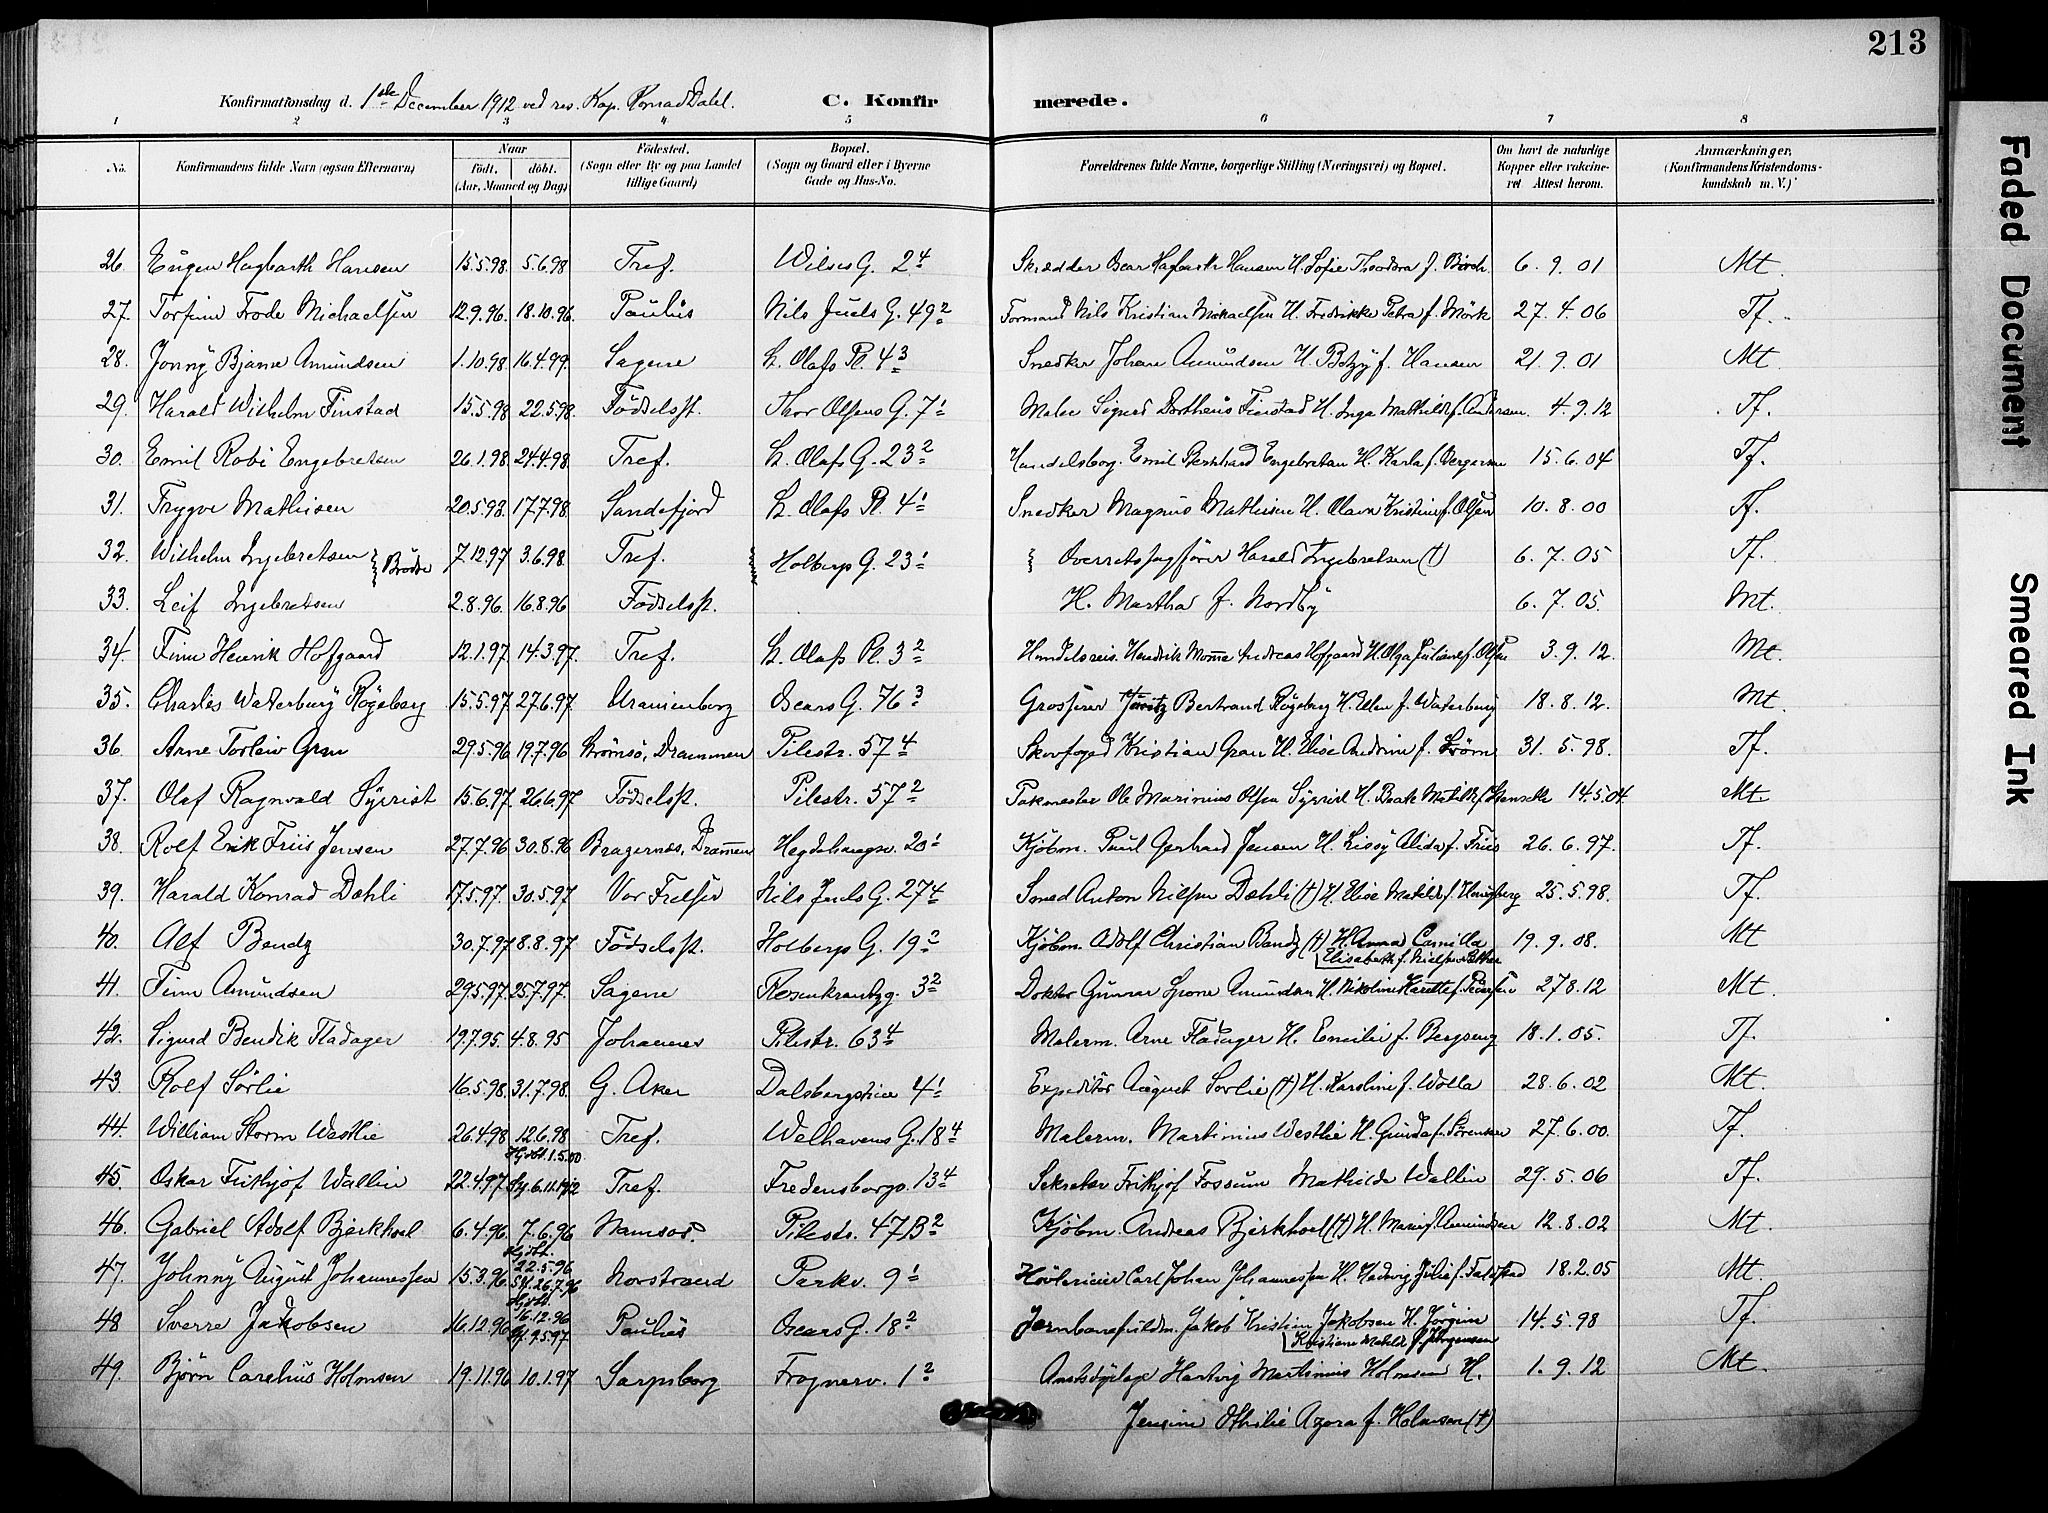 213
Konfirmationsdag d. 1ste December 1912 ved res. Kap. Konrad Dahl.
C. Konfirmerede.
1 2 3 4 5 6 7 8
No. Konfirmandens fulde Navn (ogsaa Efternavn) Naar født. døbt. (Aar, Maaned og Dag) Fødested. (Sogn eller By og paa Landet tillige Gaard) Bopæl. (Sogn og Gaard eller i Byerne Gade og Hus-No. Forældrenes fulde Navne, borgerlige Stilling (Næringsvei) og Bopæl. Om havt de naturlige Kopper eller vaccineret. Attest herom. Anmærkninger. (Konfirmandens Kristendomskundskab m. V.)
26. Eugen Hagbarth Hansen 15.5.98 5.6.98 Tref. Wilses G. 2 4 Skrædder Oscar Hagbarth Hansen H. Sofie Theodora f. Birch 6.9.01 Mt.
27. Torfinn Frode Michaelsen 12.9.96. 18.10.96. Paulus Nils Juels G. 49 2 Formand Nils Kristian Michaelsen H. Fredrikke Petra f. Mörk 27.4.06 Tf.
28. Jonny Bjarne Amundsen 1.10.98 16.4.99. Sagene St. Olafs Pl. 4 3 Snedker Johan Amundsen H. Betzy f. Hansen 21.9.01 Mt.
29. Harald Wilhelm Finstad 15.5.98 22.5.98. Födselsst. Thor Olsens G. 7 1 Maler Sigurd Dortheus Finstad H. Inga Mathilde f. Andersen. 4.9.12 Tf.
30. Emil Robi Engebretsen 26.1.98 24.4.98. Tref. St. Olafs G. 23 2 Handelsborg. Emil Bernhard Engebretsen H. Karla f. 15.6.04 Tf.
31. Trygve Mathisen 20.5.98. 17.7.98. Sandefjord St. Olafs Pl. 4 1 Snedker Magnus Mathisen H. Olava Kristine f. Olsen 10.8.00 Tf.
32. Wilhelm Ingebretsen } Brödre 7.12.97 3.6.98. Tref. Holbergs G. 23 1 Overretssagfører Harald Ingebretsen (†) 6.7.05 Tf.
33. Leif Ingebretsen 2.8.96. 16.8.96 Födselsst. H. Martha f. Nordby 6.7.05. Mt.
34. Finn Henrik Hofgaard 12.1.97. 14.3.97. Tref. St. Olafs Pl. 3 2 Handelsreis. Hendrik Momme Andreas Hofgaard H. Olga Juliane f. Olsen 3.9.12. Mt.
35. Charles Waterbury Rögeberg 15.5.97 27.6.97 Uranienborg Oscars G. 76 3 Grosserer Bertrand Rögeberg H. Ellen f. Waterbury 18.8.12. Mt.
36. Arne Torleiv Gran 29.5.96 19.7.96 Strömsö, Drammen Pilestr. 57 4 Skovfoged Kristian Gran H. Elise Andrine f. Ström 31.5.98. Tf.
37. Olaf Ragnvald Syrrist 15.6.97. 26.6.97 Födselsst. Pilestr. 57 2 Pakmester Ole Marinius Olsen Syrrist H. Beate Matilde f. 14.5.04. Mt.
38. Rolf Erik Friis Jensen 27.7.96 30.8.96 Bragernæs, Drammen Hegdehaugsv. 20 1 Kjöbm. Paul Gerhard Jensen H. Lissy Alida f. Friis 26.6.97. Tf.
39. Harald Konrad Dæhli 17.5.97. 30.5.97 Vor Frelser Nils Juels G. 27 4 Smed Anton Nilsen Dæhli (†) H. Elise Matilde f. 25.5.98. Tf.
40. Alf Bendz 30.7.97 8.8.97 Födselsst. Holbergs G. 19 2 Kjöbm. Adolf Christian Bendz (†) H. Anna Camilla Elisabeth f. Nielsen 19.9.08. Mt
41. Finn Amundsen 29.5.97 25.7.97. Sagene Rosenkrantzg. 3 2 Doktor Gunnar Amundsen H. Nikoline Harette f. Pedersen 27.8.12 Mt.
42. Sigurd Bendik Fladager 19.7.95. 4.8.95 Johannes Pilestr. 63 4 Malerm. Arne Fladager H. Emilie f. Bergseng 18.1.05. Tf.
43. Rolf Sörlie 16.5.98 31.7.98. G. Aker Dalsbergstien 4 1 Expeditör August Sorlie (†) H. Karoline f. Wolla 28.6.02 Mt.
44. William Storm Westlie 26.4.98 12.6.98 Hjdbt. 1.5.00. Tref. Welhavens G. 18 4 Malerm. Martinius Westlie H. Gunda f. Sörensen 27.6.00. Tf.
45. Oskar Frithjof Wallin 22.4.97 St. 6.11.1912 Tref. Fredensborgv. 13 4 Sekretær Frithjof Fossum Mathilde Wallin 29.5.06 Tf.
46. Gabriel Adolf Bjerkhoel 6.4.96. 7.6.96 Namsos. Pilestr. 47B 2 Kjöbm. Andreas Bjerkhoel (†) H. Marie f. Amundsen 12.8.02 Mt.
47. Johnny August Johannessen 15.3.96 Hjdbt. 22.5.96 St. 26.7.96 Norstrand Parkv. 9 1 Hövlerieier Carl Johan Johannessen H. Hedvig Julie f. 18.2.05 Mt.
48 Sverre Jakobsen 16.12.96 Hjdbt. 16.12.96 St. 9.5.97 Paulus Oscars G. 18 2 Jernbanefuldm. Jakob Kristian Jakobsen H. Jörgine Kristiane Matilde f. Jörgensen 14.5.98 Tf.
49. Björn Carelius Holmsen 19.11.96 10.1.97 Sarpsborg Frognerv. 1 2 Amtsdyrlæge Hartvig Martinius Holmsen H. 1.9.12 Mt.
Jensine Othilie Azora f. Holmsen (†)
Faded Document
Smeared Ink